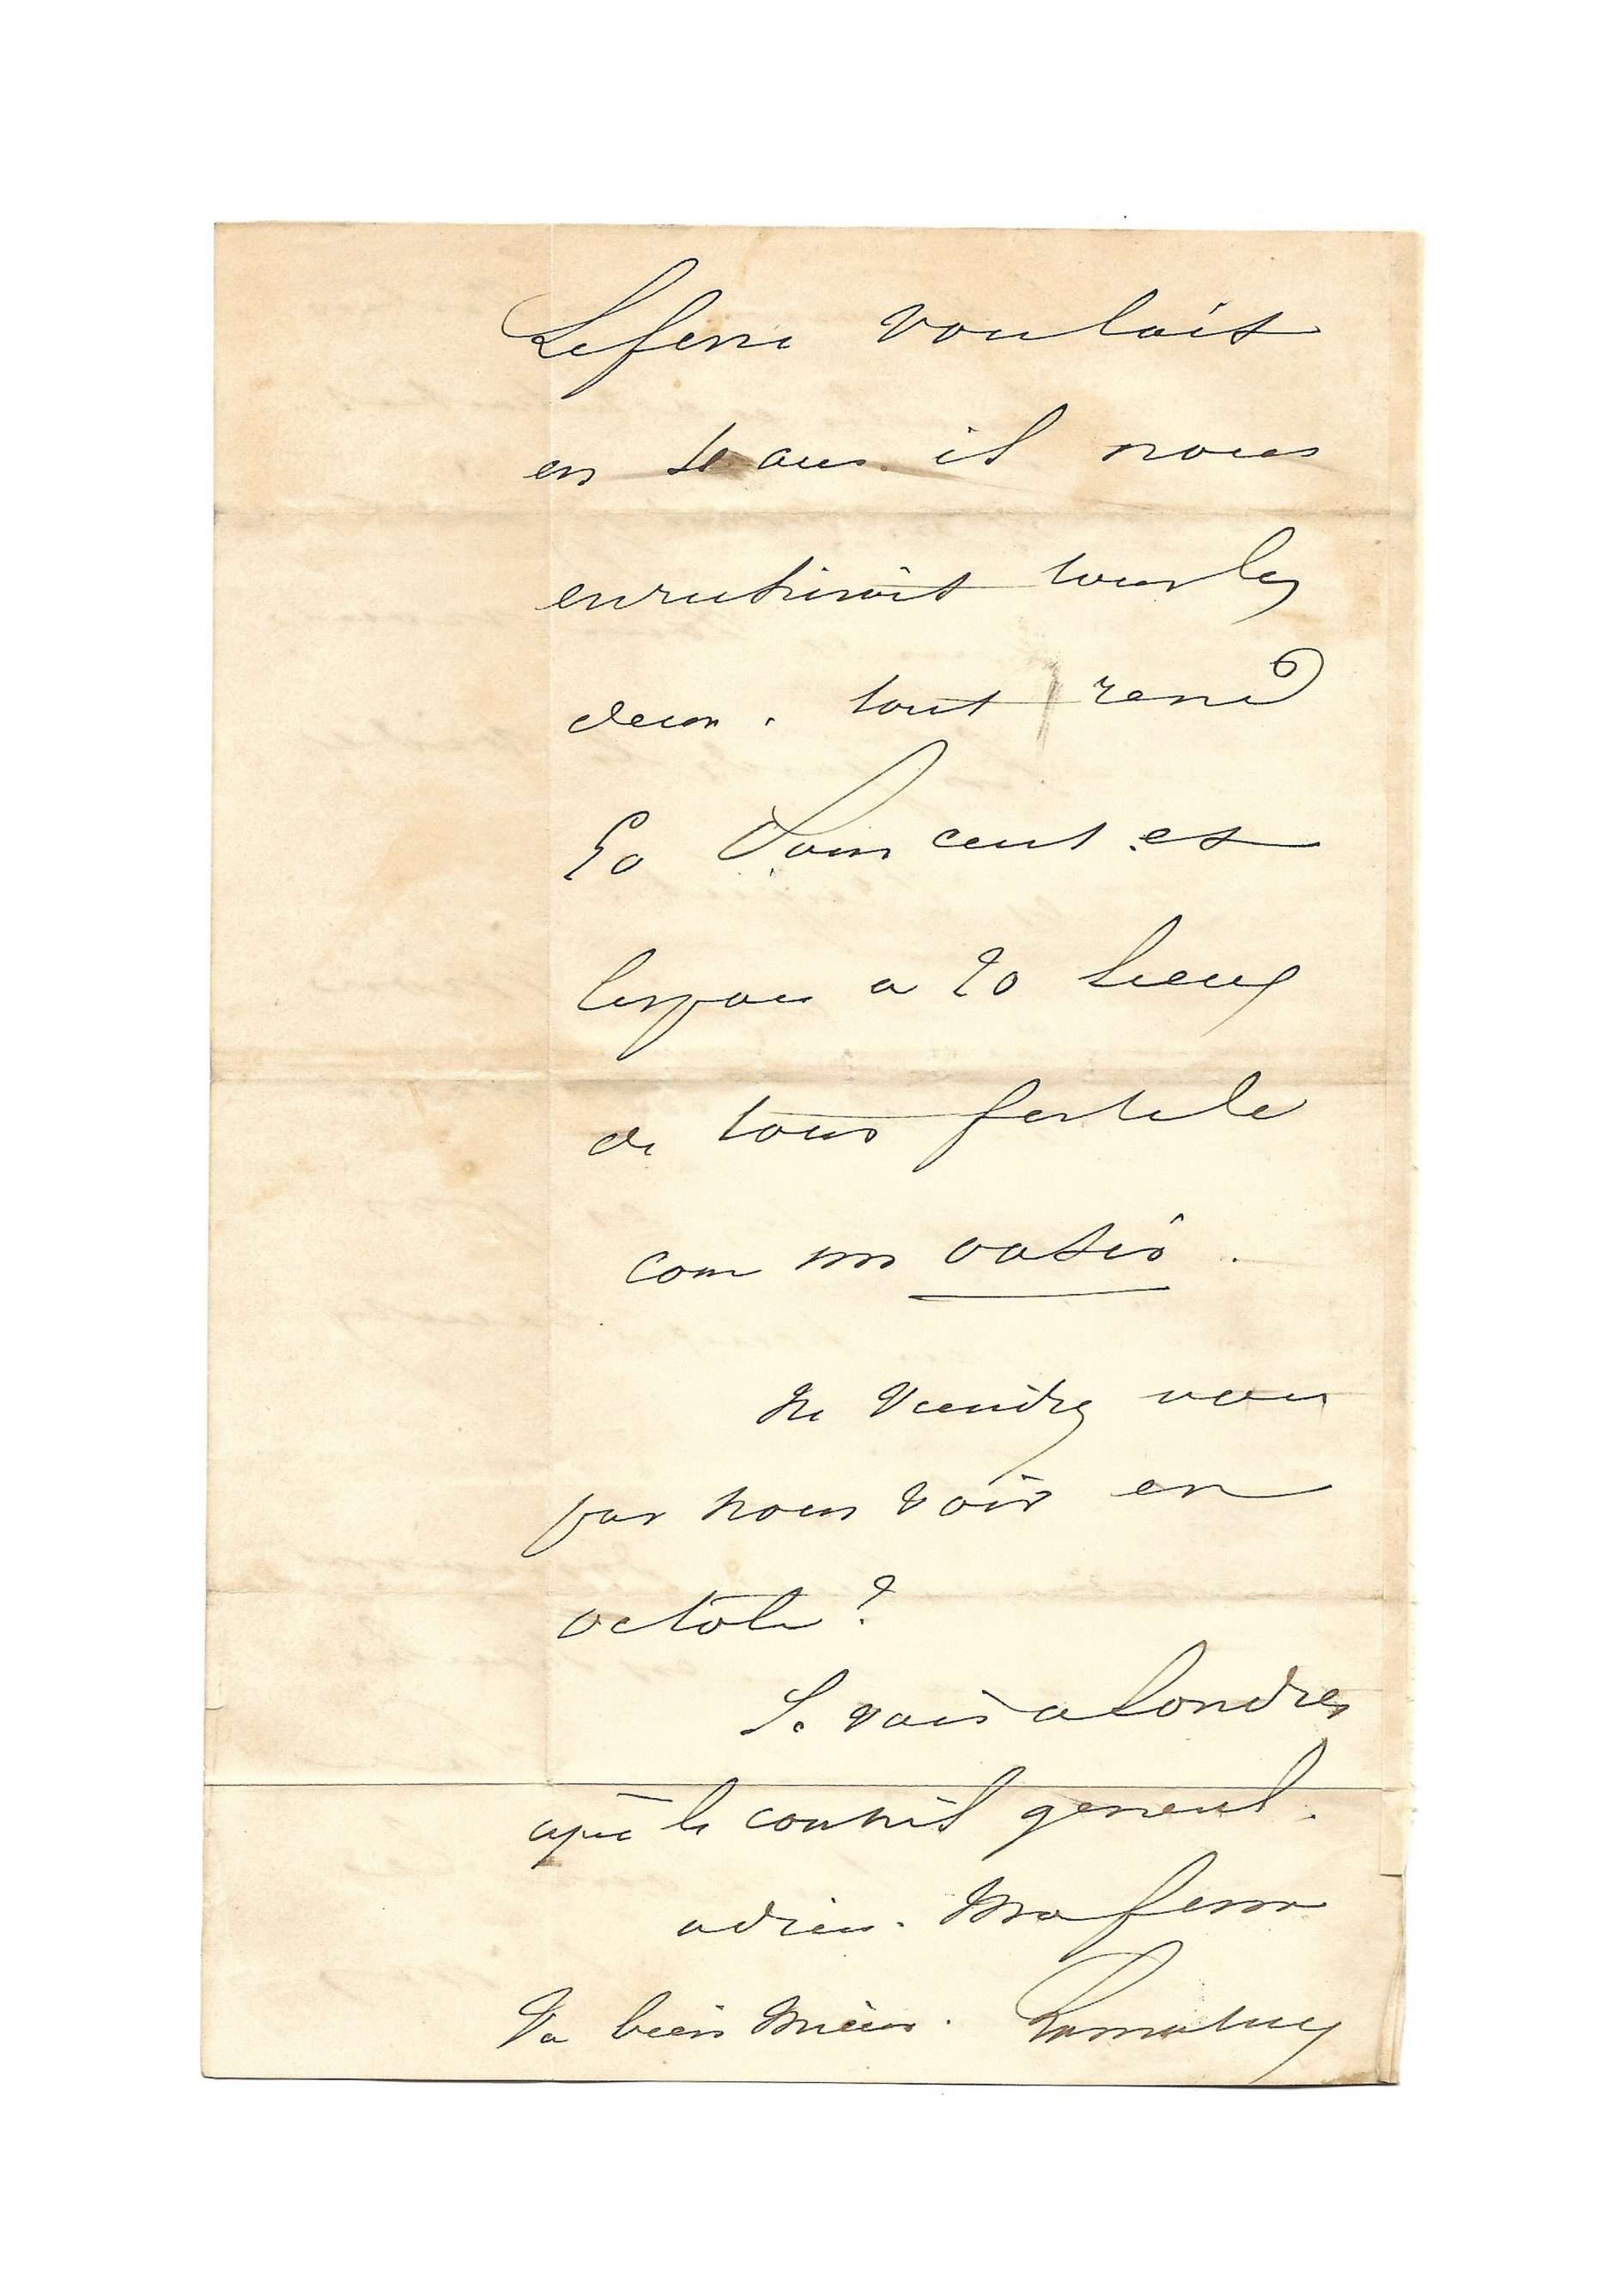 Lefevre voulait
en 10 ans il nous
enrichirait tous les
deux. tout rend
50 Pour cent et
l'espace a 20 lieues
de tour fertile
com un oasis.
Ne viendrez vous
pas nous voir en
octobre?
Je vais a Londres
après le conseil general.
adieu. Ma femme
va bien mieux. Lamartine